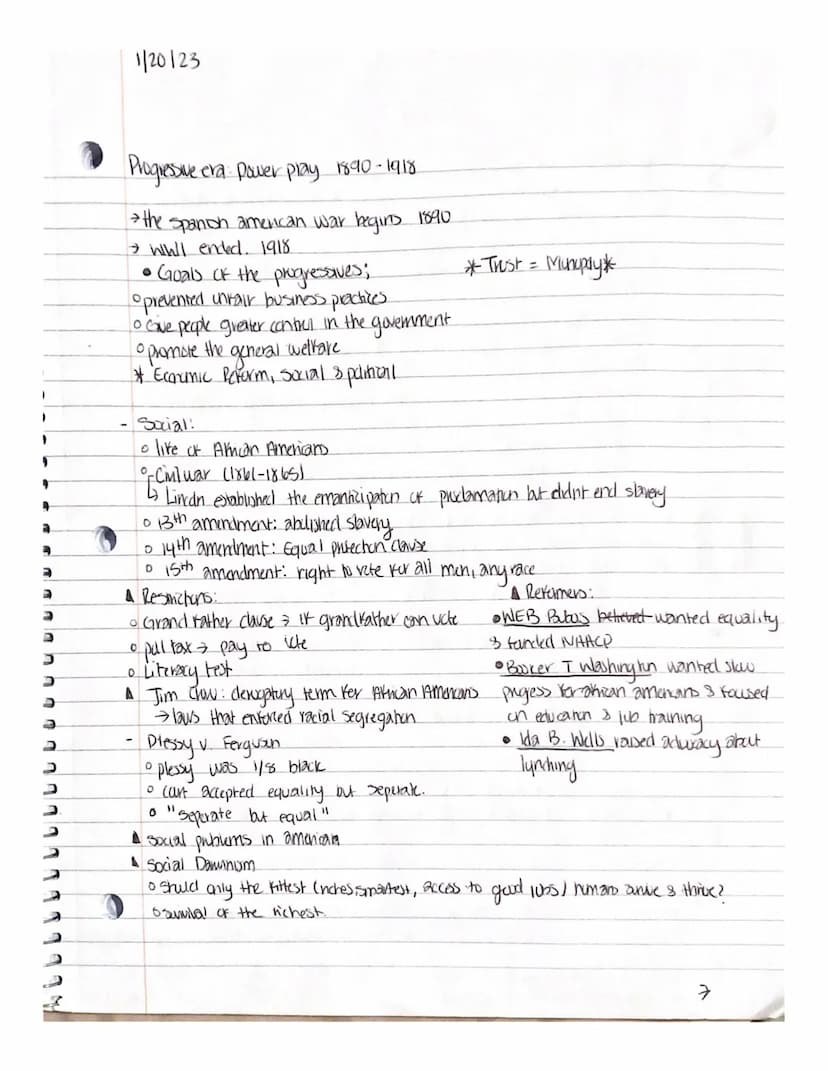 1/20/23
Progressive era: Power play 1890-1918
→ the spanish american war begins 1890
→ WWI ended. 1918
• Goals of the progressives;
* Trust = Munopoly *
○ prevented unfair business practices
○ Give people greater control in the government
○ promote the general welfare
* Economic Reform, social & political
- Social:
○ life of African Americans
○ - Civil war (1861-1865)
↳ Lincoln established the emanticipation of proclamation but didnt end slavery
○ 13th amendment: abolished slavery
○ 14th amendment: Equal protection clause
○ 15th amendment: right to vote for all men, any race
▲ Restrictions:
○ Grandfather clause → if grandfather can vote
○ poll tax → pay to vote
○ Literacy test
▲ Jim Crow: derogatory term for African Americans
→ laws that enforced racial segregation
- Plessy v. Ferguson
○ plessy was 1/8 black
○ court accepted equality but seperate.
○ "seperate but equal"
▲ Reformers:
• WEB Dubois believed wanted equality
& funded NAACP
• Booker T Washington wanted slow
progess for african americans & focused
on education & job training
• Ida B. Wells raised advocacy about
lynching
▲ social problems in american
▲ Social Darwinism
○ should only the fittest (riches smartest, access to good jobs) humans and thrive?
○ survival of the richest
→